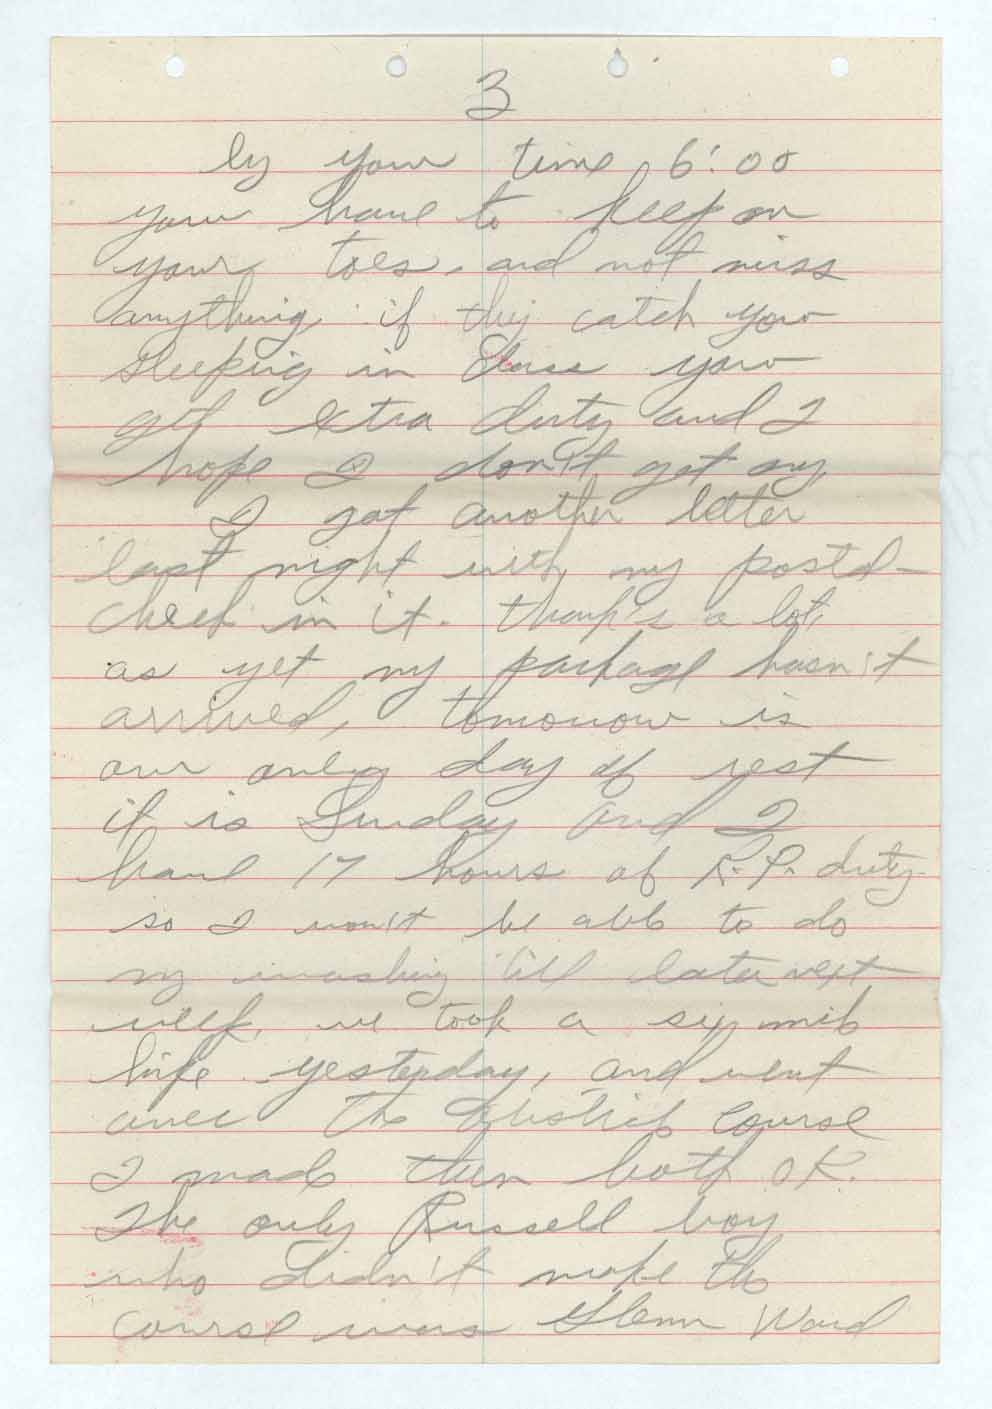 3
by your time 6:00
your have to keep on
your toes, and not miss
anything if they catch your
sleeping in class your
get extra duty and I
hope I don't get any
I got another letter
last night with my postal
check in it. thank's a lot,
as yet my package hasn't
arrived, tomorrow is
our only day of rest
it is Sunday and I
have 17 hours of K.P. duty
so I won't be able to do
my washing till later next
week, we took a six mile
hike yesterday, and went
over the obsticle course
I made them both OK.
The only Russell boy
who didn't make the
course was Glenn Ward